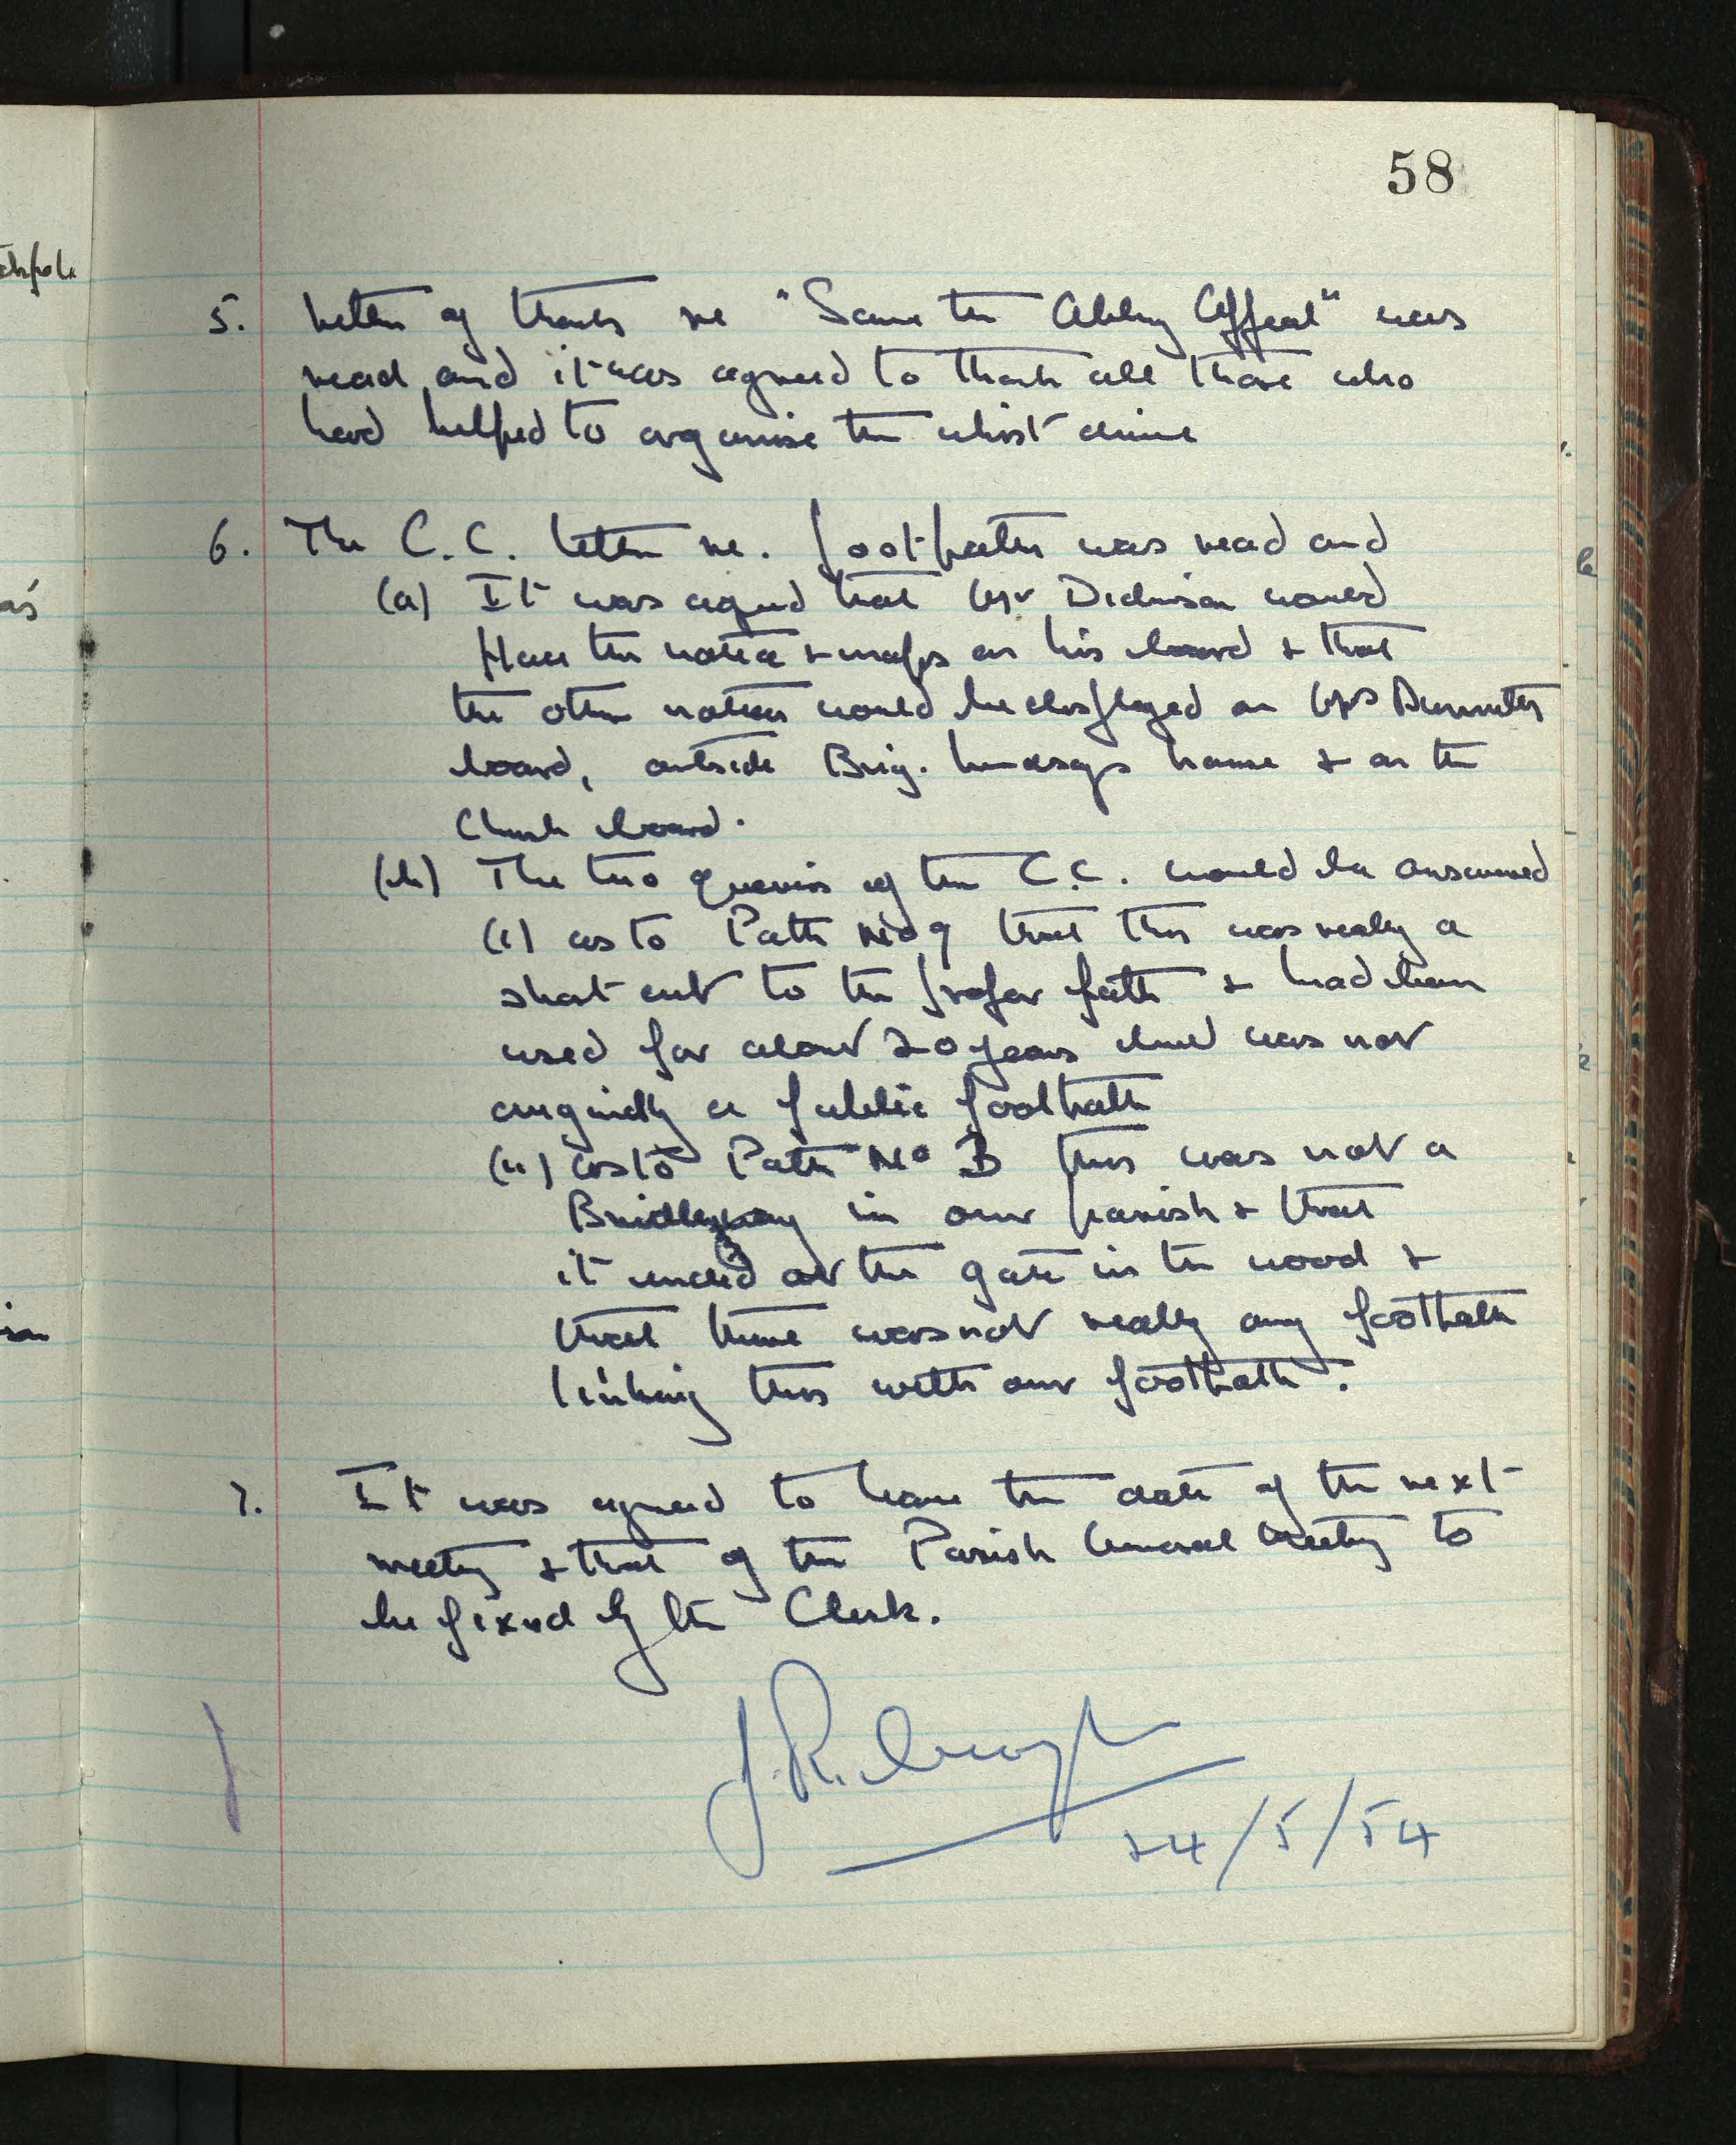 58
5. Letter of thanks re "Save the Abbey Appeal" was
read and it was agreed to thank all those who
had helped to organise the whist drive
6. The C.C. letter re. footpaths was read and
(a) It was agreed that Mr Dickinson would
place the notice & maps on his board & that
the other notices would be displayed on Mrs
board, outside Brig. Lindsays house & on the
Church board.
(b) The two queries of the C.C. would be answered
(i) as to Path No 9 that this was really a
short cut to the proper path & had been
used for about 20 years and was not
originally a public footpath
(ii) as to Path No 3 this was not a
Bridleway in our parish & that
it ended at the gate in the wood &
that there was not really any footpath
linking this with our footpath.
7. It was agreed to leave the date of the next
meeting & that of the Parish General Meeting to
be fixed by the Clerk.
24/5/54